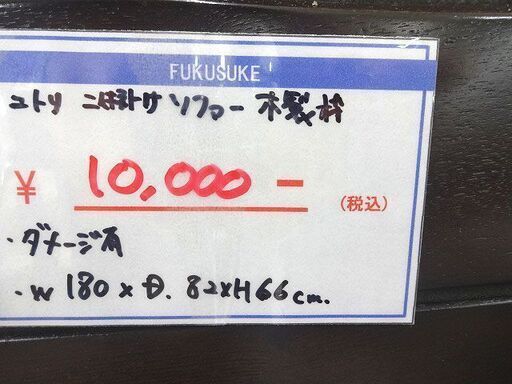 FUKUSUKE
ユトリ 二人掛け ソファー 木製枠
¥ 10,000- (税込)
・ダメージ有
・W 180 x D. 82xH66cm.